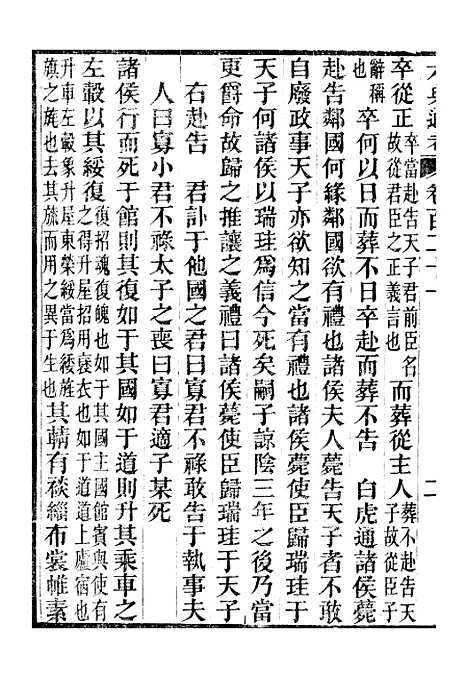 卷百二十一
二
卒從正卒當赴告天子君前臣名故從君臣之正義言也而葬從主人葬不赴告天子故從臣子
辭稱也　卒何以日而葬不日卒赴而葬不告　白虎通諸侯薨
赴告鄰國何緣鄰國欲有禮也諸侯夫人薨告天子者不敢
自廢政事天子亦欲知之當有禮也諸侯薨使臣歸瑞珪于
天子何諸侯以瑞珪爲信今死矣嗣子諒陰三年之後乃當
更爵命故歸之推讓之義禮曰諸侯薨使臣歸瑞珪于天子
右赴告　君訃于他國之君曰寡君不祿敢告于執事夫
人曰寡小君不祿太子之喪曰寡君適子某死
諸侯行而死于館則其復如于其國如于道則升其乘車之
左轂以其綏復復招魂復魄也如于其國主國館賓與使有之得升屋招用襃衣也如于道道上廬宿也
升車左轂象升屋東榮綏當爲緌旌旗之旄也去其旒而用之異于生也其輤有裧緇布裳帷素